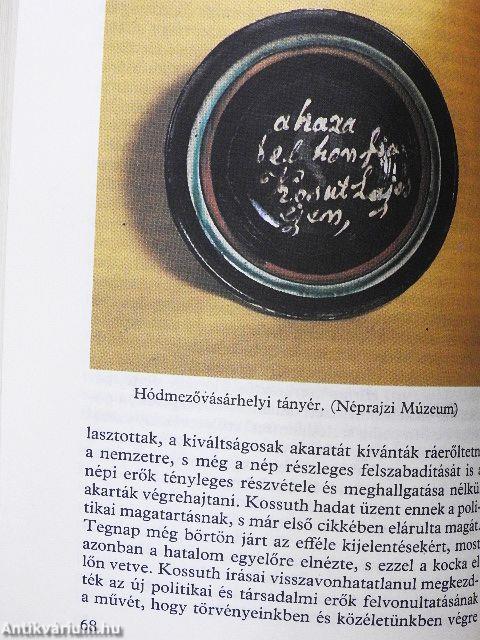 a haza
bel hon fia
Kosut Lajos
éjen,
Hódmezővásárhelyi tányér. (Néprajzi Múzeum)
lasztottak, a kiváltságosak akaratát kívánták ráerőltetn
a nemzetre, s még a nép részleges felszabadítását is a
népi erők tényleges részvétele és meghallgatása nélkü
akarták végrehajtani. Kossuth hadat üzent ennek a poli-
tikai magatartásnak, s már első cikkében elárulta magát.
Tegnap még börtön járt az efféle kijelentésekért, most
azonban a hatalom egyelőre elnézte, s ezzel a kocka el
lőn vetve. Kossuth írásai visszavonhatatlanul megkezd-
ték az új politikai és társadalmi erők felvonultatásának
a művét, hogy törvényeinkben és közéletünkben végre
68
Antikvárium.hu